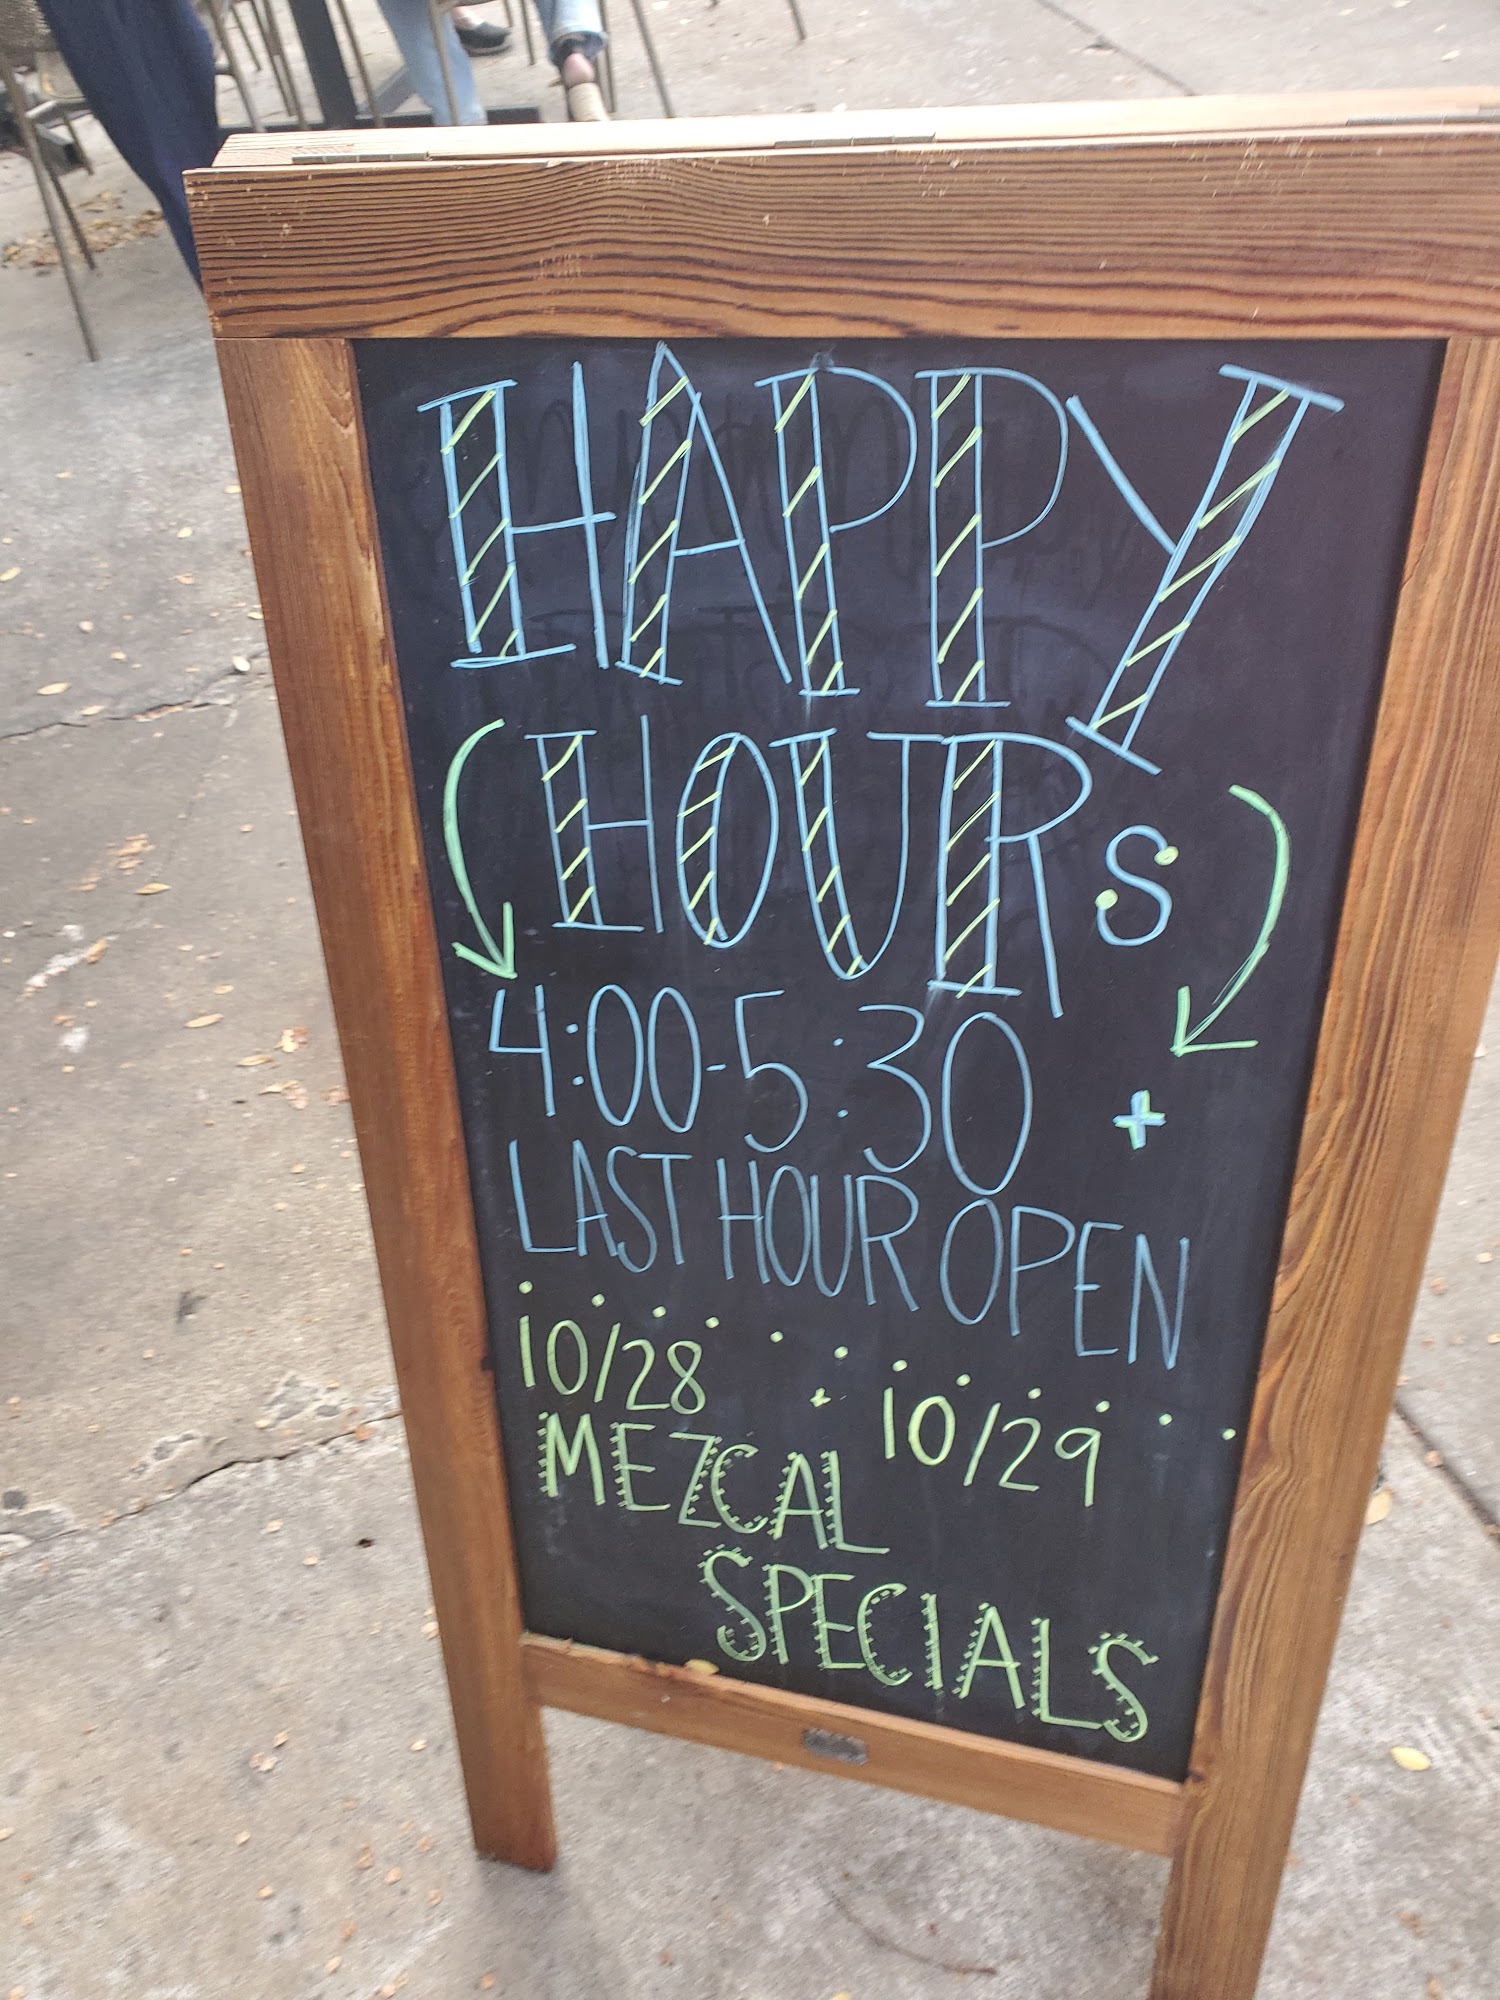 HAPPY
HOURS
4:00-5:30 +
LAST HOUR OPEN
10/28 + 10/29
MEZCAL
SPECIALS